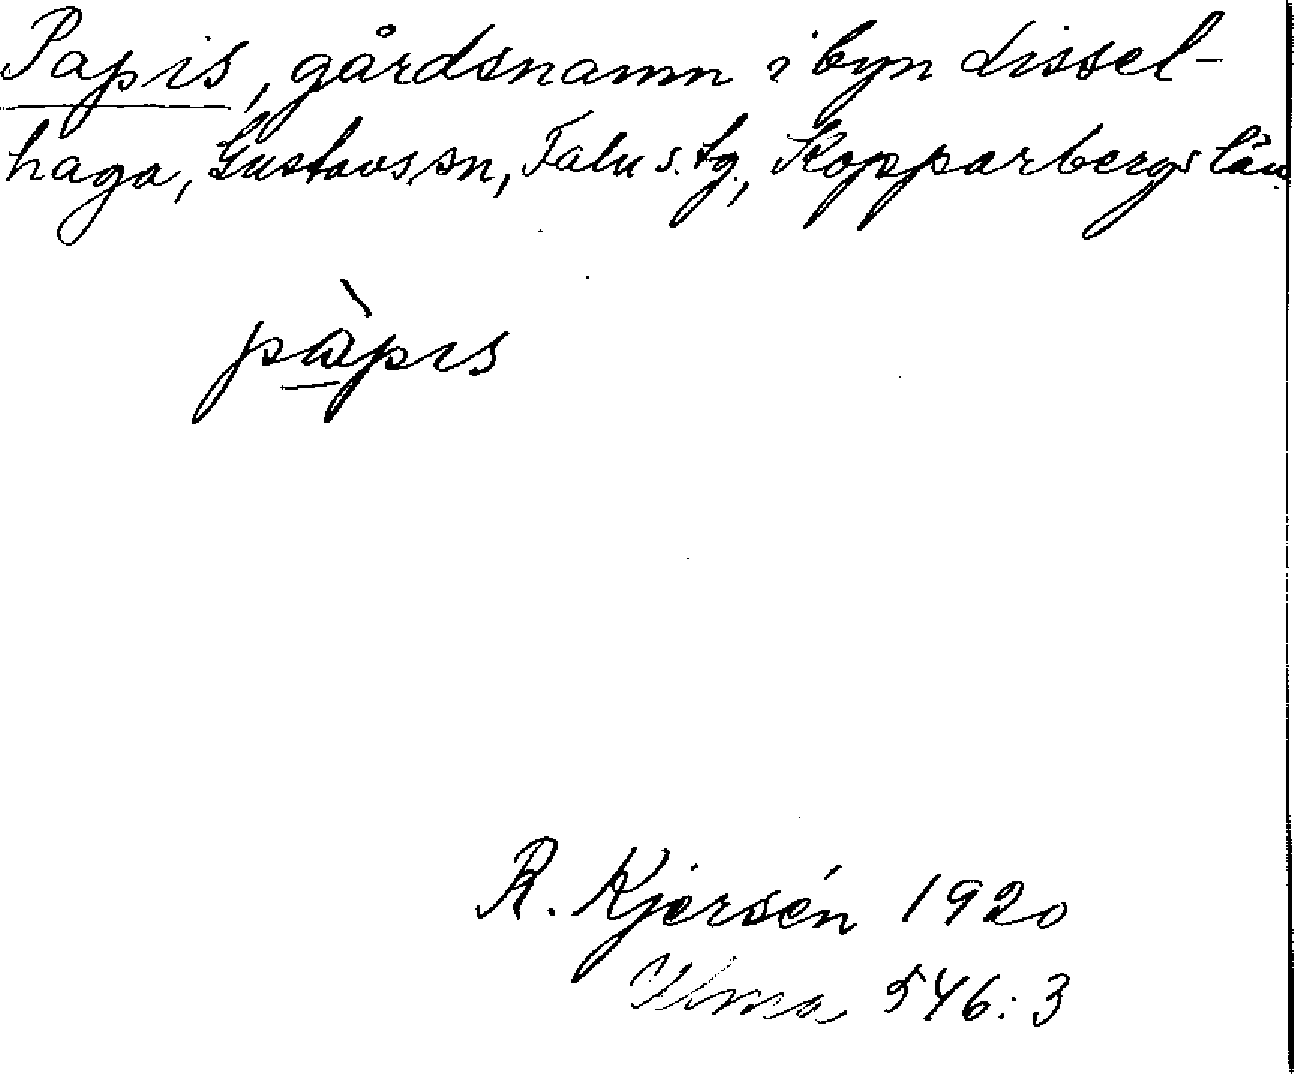 Papis, gårdsnamn i byn Lissel-
haga, Gustavs sn, Falu s. tg., Kopparbergs län
pàpıs
R. Kjersén 1920
Ulma 546:3